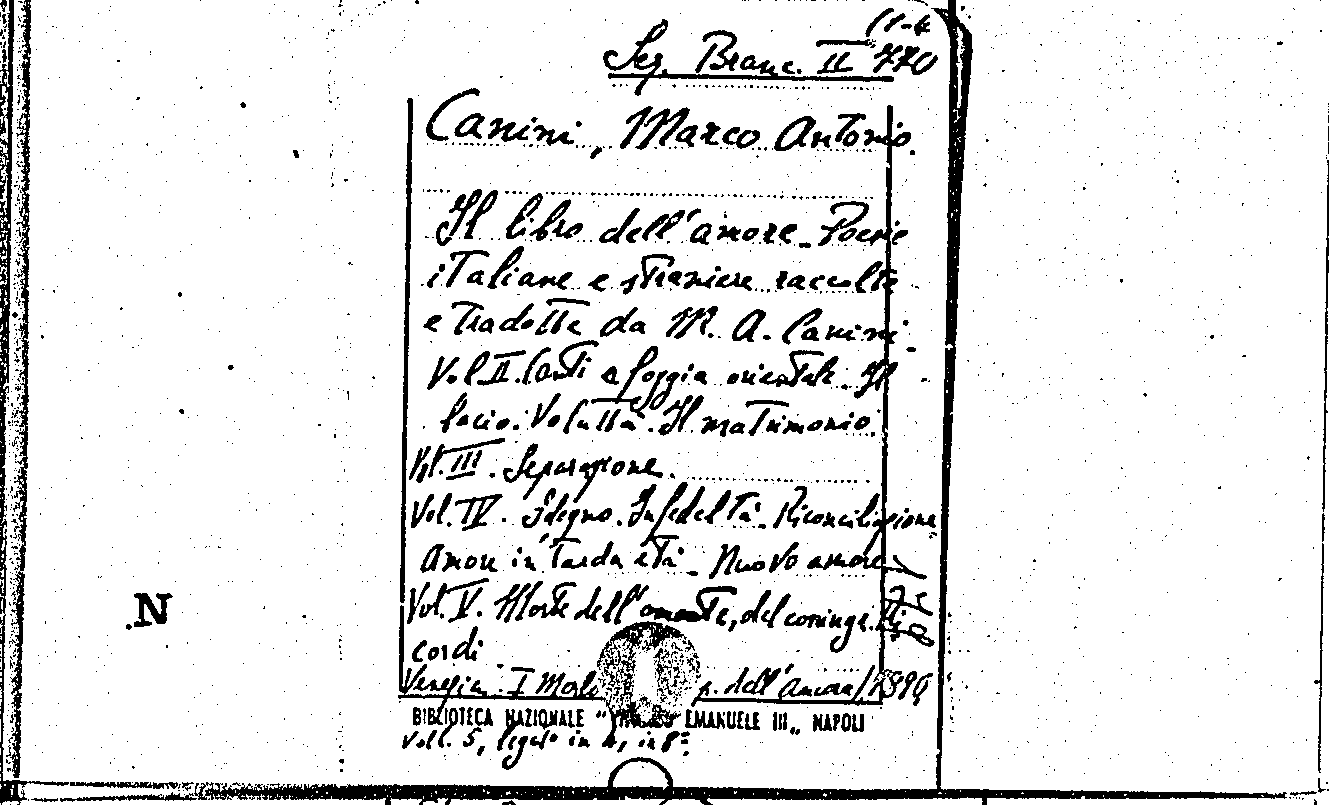 (1-4
Seg. Branc. II 770
Canini, Marco Antonio.
Il libro dell'amore. Poesie
italiane e straniere raccolte
e tradotte da M. A. Canini.
Vol. II. Canti a foggia orientale. Il
bacio. Voluttà. Il matrimonio.
Vol. III. Separazione.
Vol. IV. Sdegno. Infedeltà. Riconciliazione.
Amore in tarda età. Nuovo amore
Vol. V. Morte dell'amante, del coniuge. Ri
cordi
Venezia. dell'Ancora
BIBLIOTECA NAZIONALE " EMANUELE III„ NAPOLI
Voll. 5, legati in 4, in 8°.
N